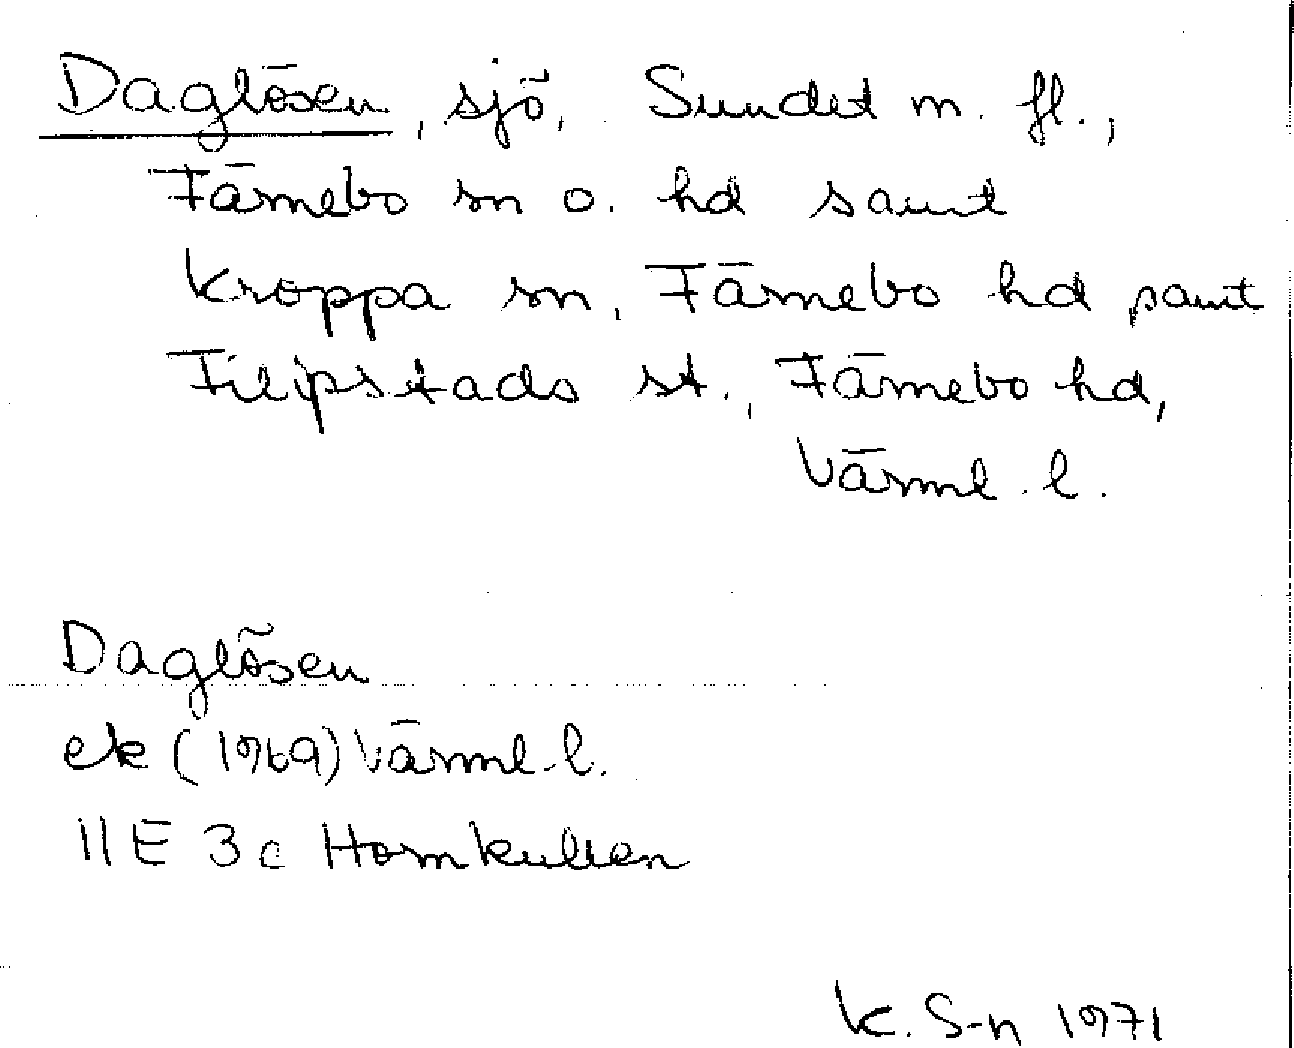 Daglösen, sjö, Sundet m. fl.,
Färnebo sn o. hd samt
Kroppa sn, Färnebo hd samt
Filipstads st., Färnebo hd,
Värml. l.
Daglösen
ek (1969) Värml. l.
11E 3c Hornkullen
K. S-n 1971